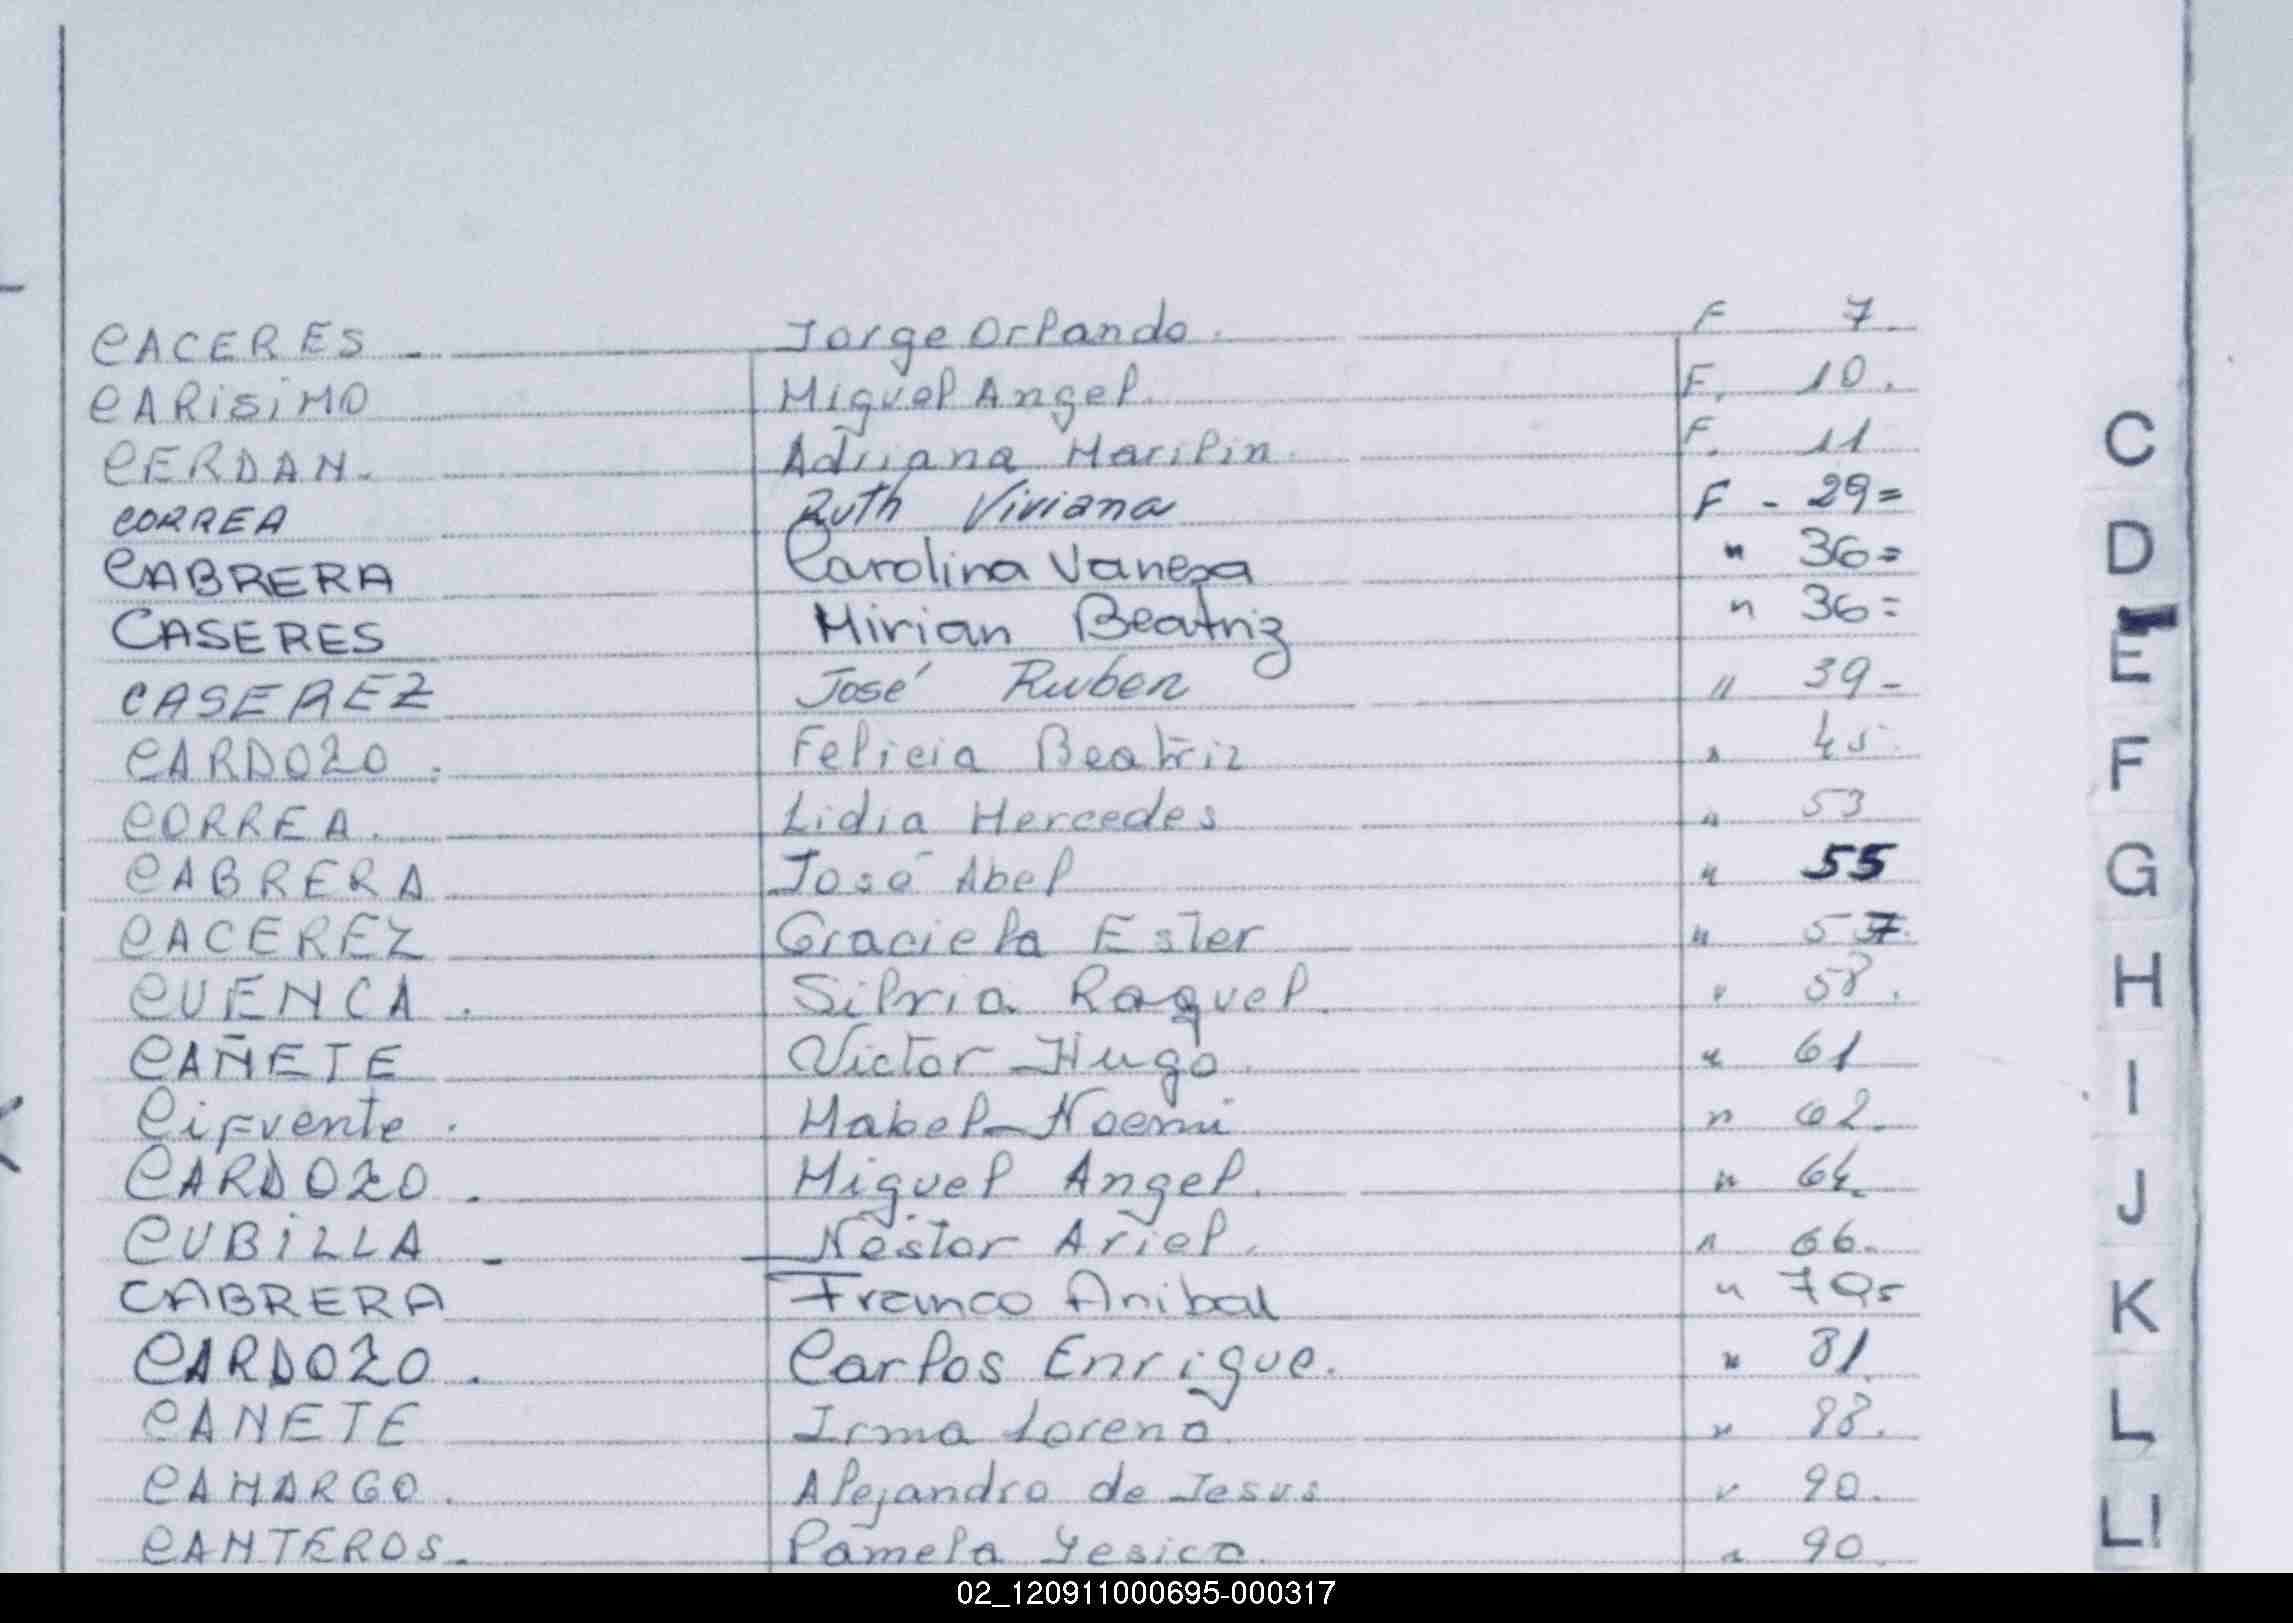 CACERES - Jorge Orlando. F 7.
CARISIMO Miguel Angel. F. 10.
CERDAN. Adriana Marilin. F. 11
CORREA Ruth Viviana F - 29=
CABRERA Carolina Vanesa " 36=
CASERES Mirian Beatriz " 36=
CASEREZ José Ruben " 39-
CARDOZO. Felicia Beatriz " 45.
CORREA. Lidia Mercedes " 53
CABRERA José Abel " 55
CACEREZ Graciela Ester " 57.
CUENCA. Silvia Raquel. " 58.
CAÑETE Victor Hugo. " 61
Cifvente. Mabel Noemi " 62.
CARDOZO. Miguel Angel. " 64.
CUBILLA - Néstor Ariel. " 66.
CABRERA Franco Anibal "
CARDOZO. Carlos Enrique. " 81.
CANETE Irma Lorena. "
CAMARGO. Alejandro de Jesus " 90.
CANTEROS. Pamela Yesica. " 90.
C
D
E
F
G
H
I
J
K
L
Ll
02_120911000695-000317